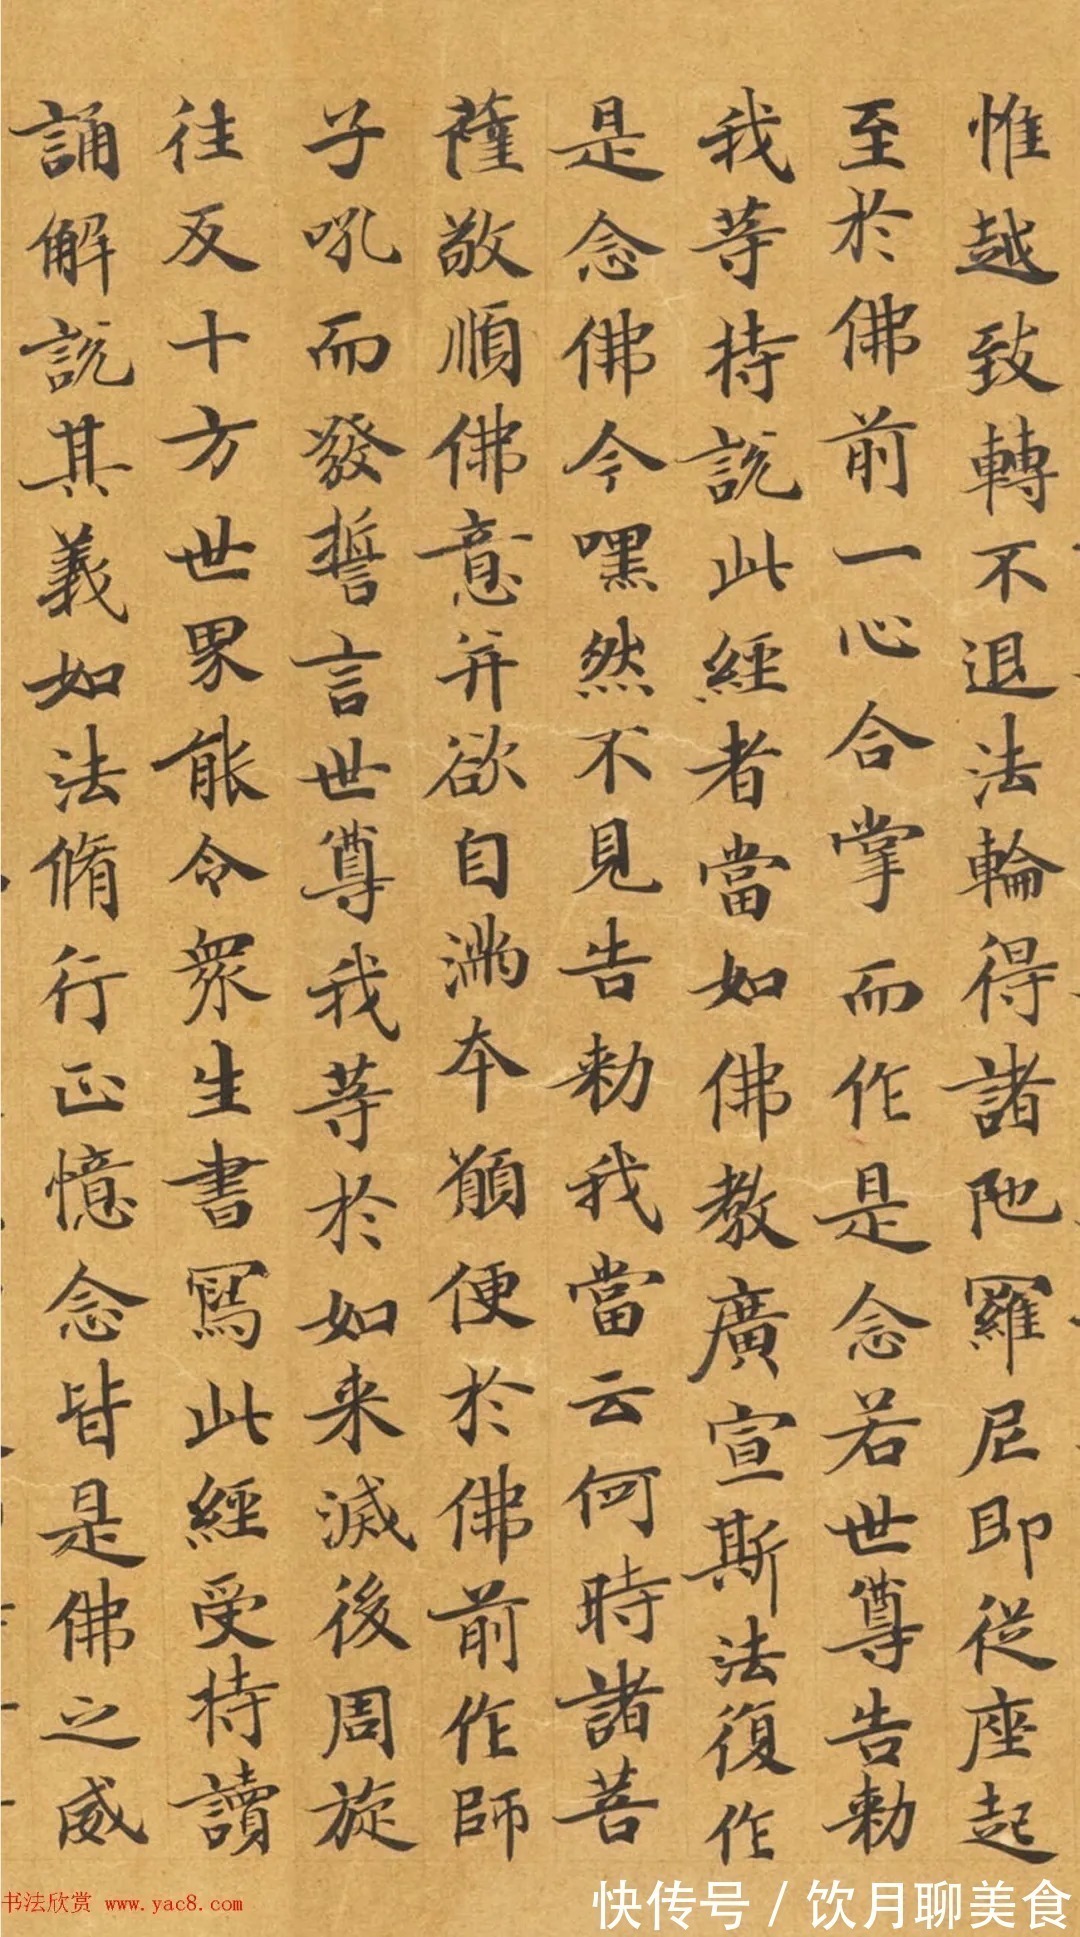 惟越致轉不退法輪得諸陁羅尼即從座起
至於佛前一心合掌而作是念若世尊告勅
我等持說此經者當如佛教廣宣斯法復作
是念佛今嘿然不見告勅我當云何時諸菩
薩敬順佛意并欲自滿本願便於佛前作師
子吼而發誓言世尊我等於如来滅後周旋
往反十方世界能令眾生書寫此經受持讀
誦解說其義如法脩行正憶念皆是佛之威
书法欣赏 www.yac8.com
快传号 / 饮月聊美食